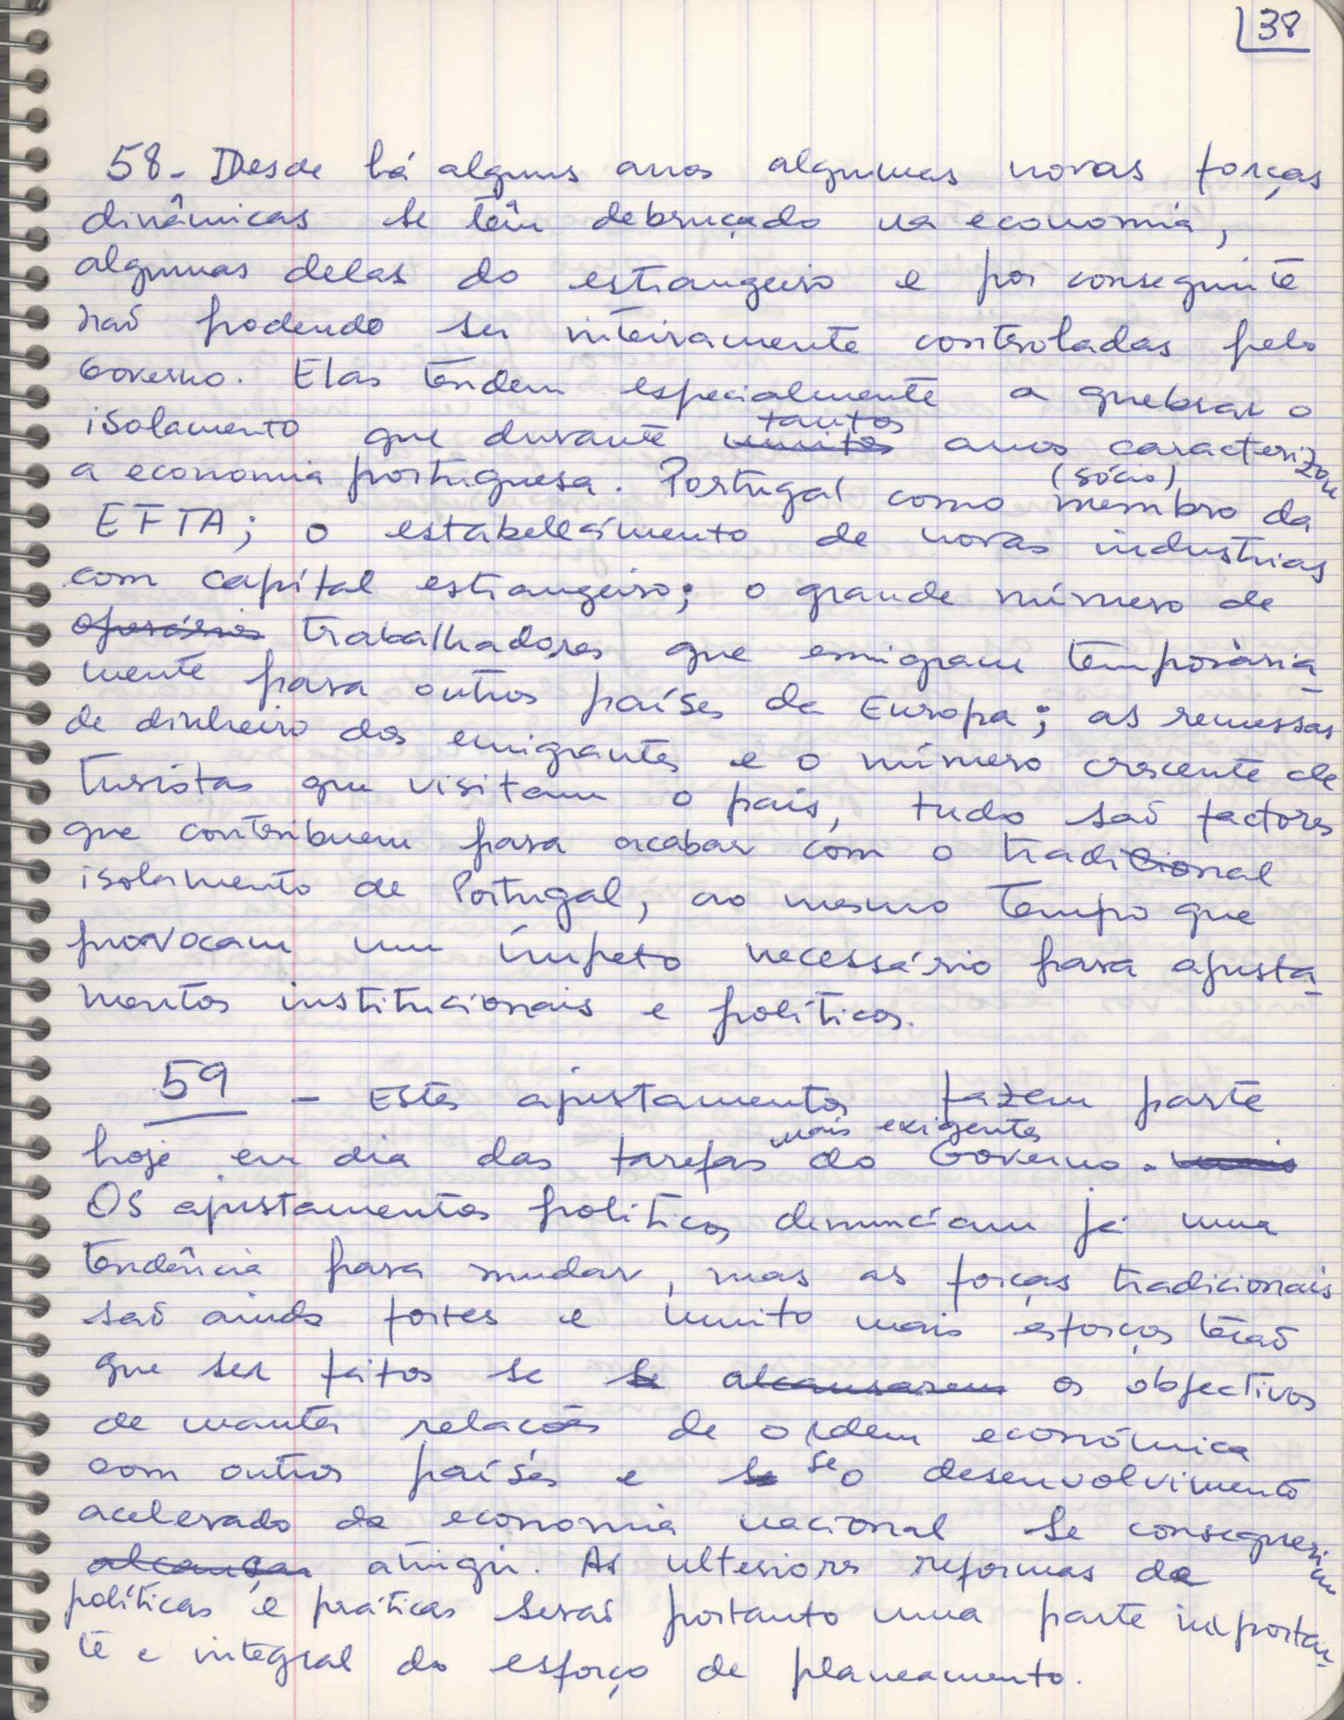 38
58 - Desde há alguns anos algumas novas forças
dinâmicas se têm debruçado na economia,
algumas delas do estrangeiro e por conseguinte
não podendo ser inteiramente controladas pelo
Governo. Elas tendem especialmente a quebrar o
isolamento que durante muitos tantos anos caracterizou
a economia portuguesa. Portugal como (sócio) membro da
EFTA; o estabelecimento de novas industrias
com capital estrangeiro; o grande número de
operários trabalhadores que emigram temporária-
mente para outros países da Europa; as remessas
de dinheiro dos emigrantes e o número crescente de
turistas que visitam o país, tudo são factores
que contribuem para acabar com o tradicional
isolamento de Portugal, ao mesmo tempo que
provocam um ímpeto necessário para ajusta-
mentos institucionais e políticos.
59 - Estes ajustamentos fazem parte
hoje em dia das tarefas mais exigentes do Governo. mais
Os ajustamentos políticos denunciam já uma
tendência para mudar, mas as forças tradicionais
são ainda fortes e muito mais esforços terão
que ser feitos se se alcansarem os objectivos
de manter relações de ordem económica
com outros países e se se o desenvolvimento
acelerado da economia nacional se conseguirem
alcançar atingir. As ulteriores reformas de
políticas e práticas serão portanto uma parte importan-
te e integral do esforço de planeamento.